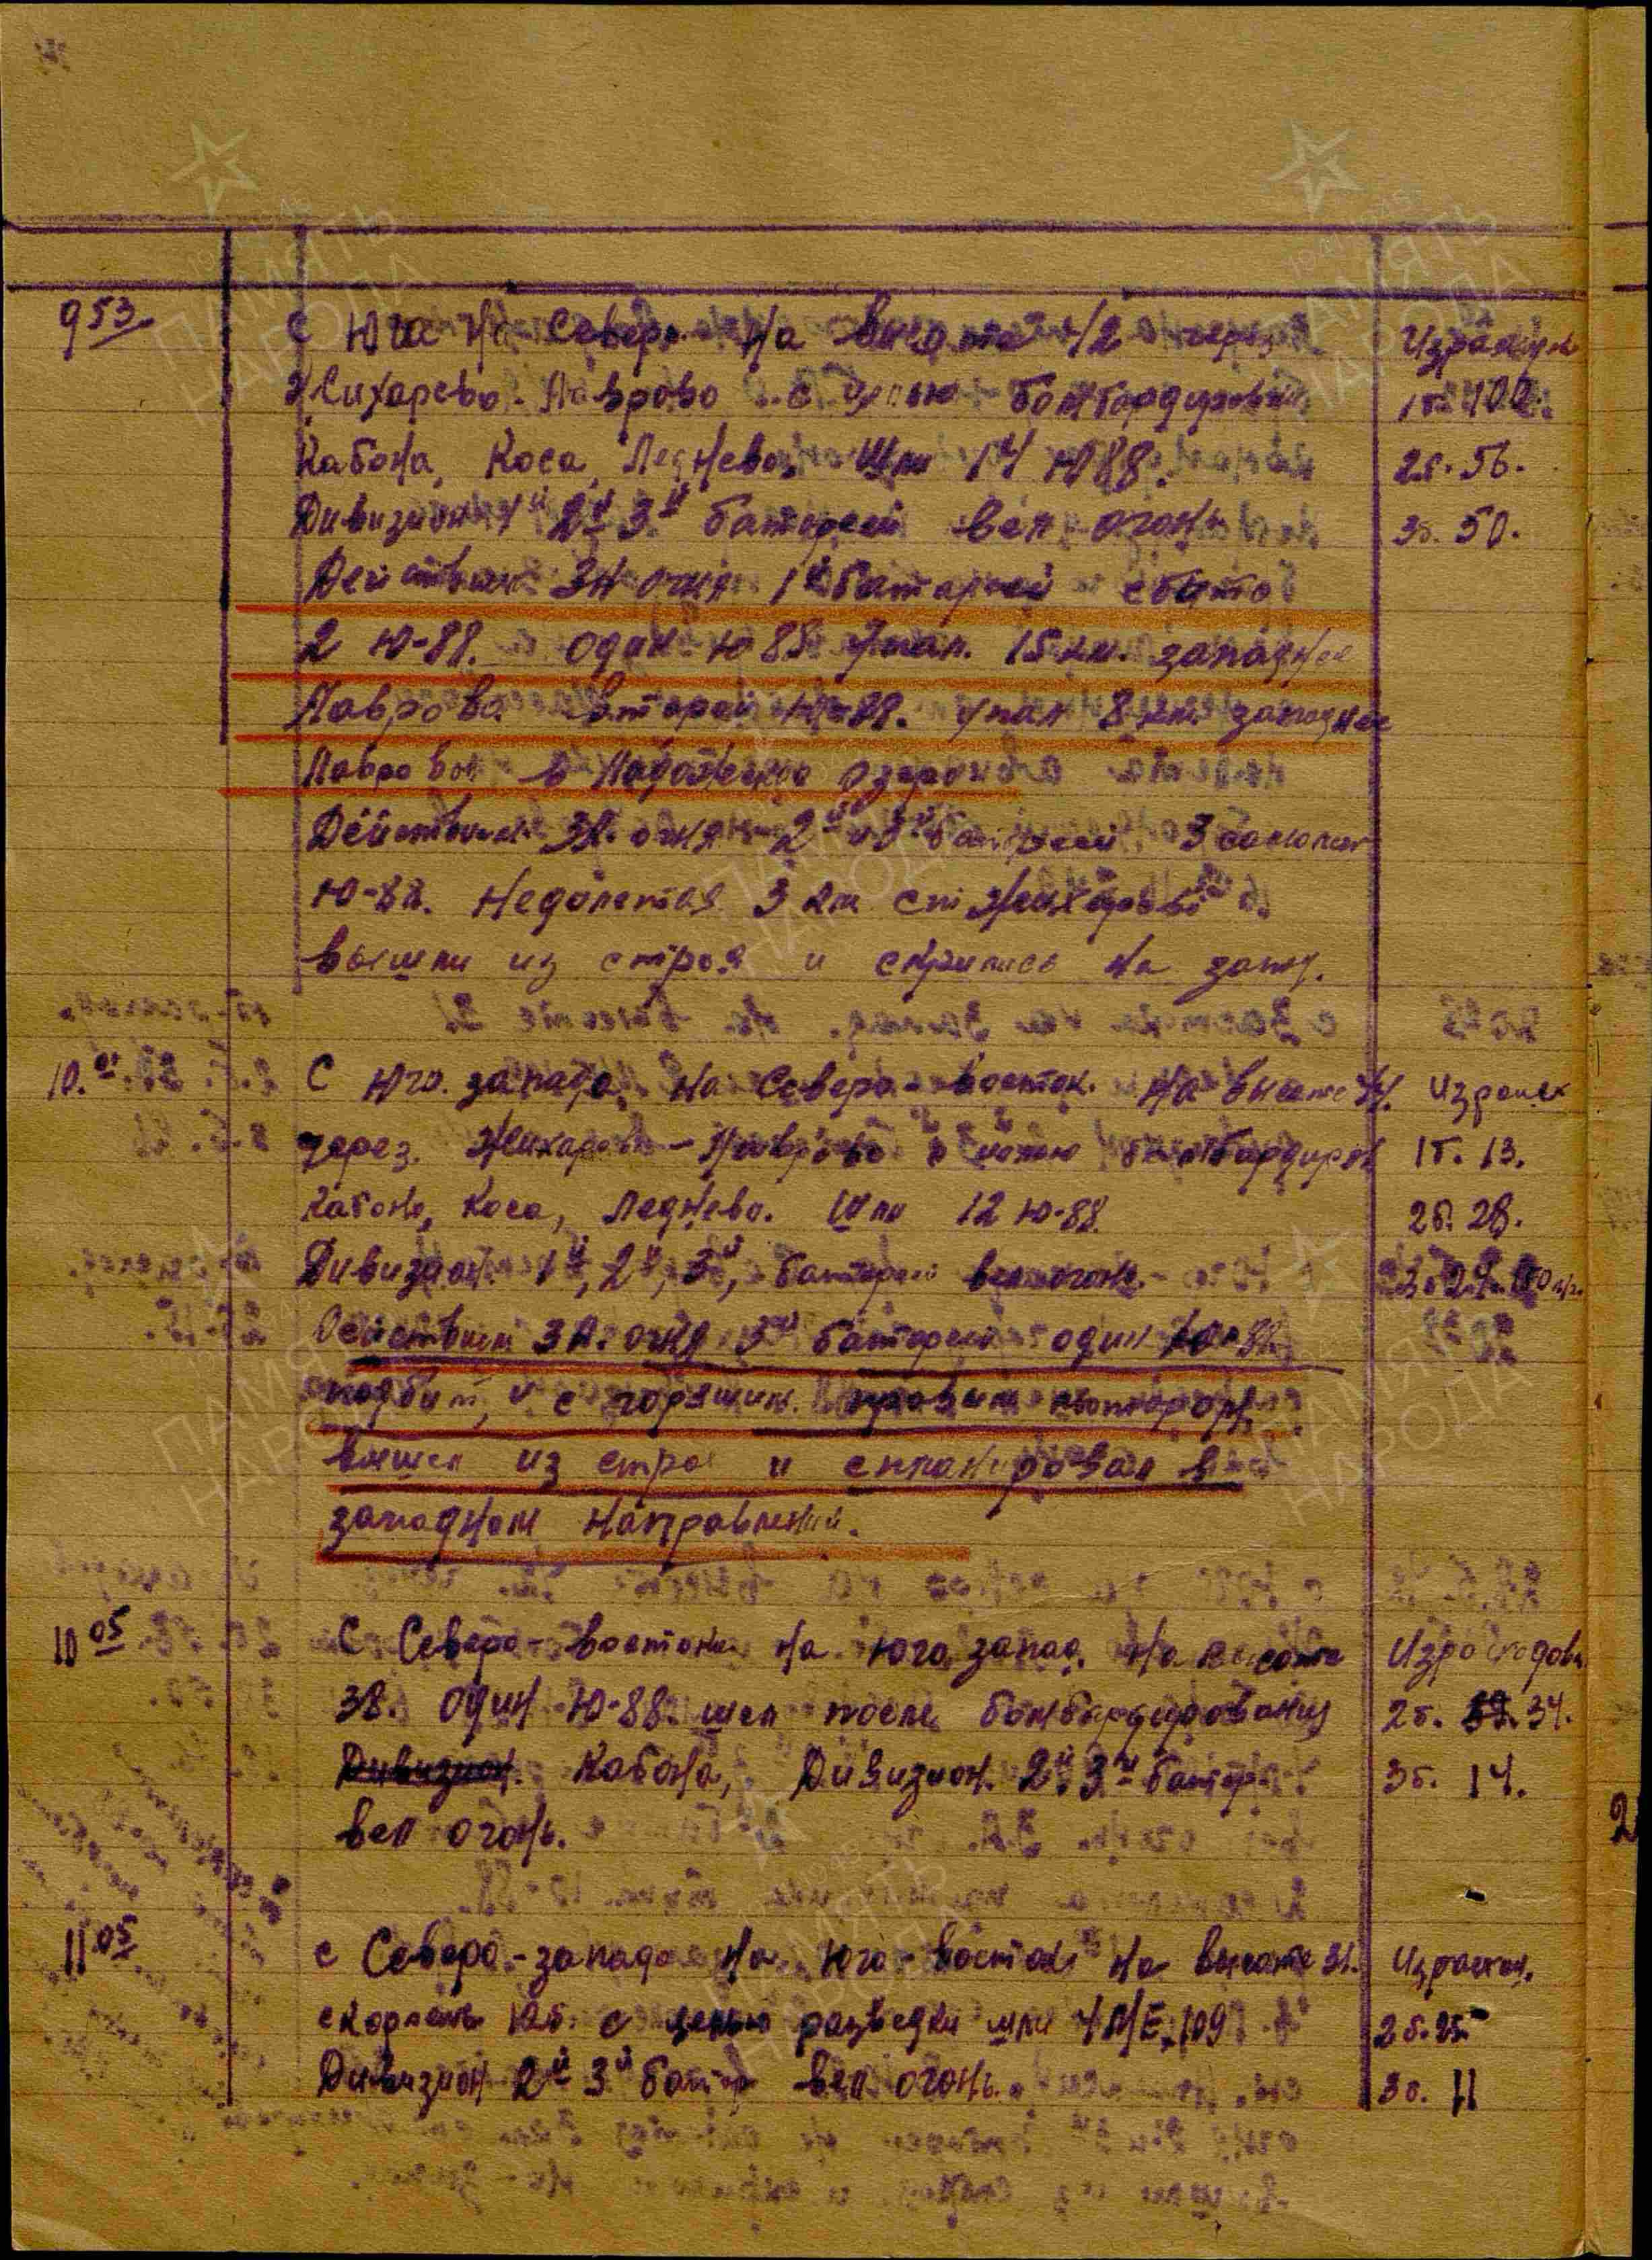 9 53 С Юга на Север на высоте 42 через Израсход
Жихарево-Лаврово с целью бомбардировки 1б. 100.
Кабона, Коса, Леднево. Шли 14 Ю 88. 2б. 56.
Дивизион 1й 2й 3й батареей вел огонь 3б. 50.
Действием ЗА огня 1й батареей сбито
2 Ю-88. один Ю 88 упал 15 км. западнее
Лаврова второй Ю-88. упал 8 км. западнее
Лаврово в Ладожское озеро
Действием ЗА. огня 2й и 3й батареей 3 самолет
Ю-88. Недолетая 3 км ст Жихарево
вышли из строя и скрылись на запад.
10. С Юго. запада на Северо-восток. На высоте Израсх
через. Жихарево-Лаврово с целью бомбардиров 1б. 13.
Кабона, Коса, Леднево. Шли 12 Ю-88. 2б. 28.
Дивизион 1й, 2й, 3й, батареей вел огонь. 3б. 29.
Действием ЗА. огня 3й батареей один Ю-88.
подбит, и с горящим. правым мотором.
вышел из строя и спланировал в
западном направлении.
10 05 С Северо-востока на Юго запад. На высоте Израсходов.
38. один Ю-88. шел после бомбардирования 2б. 34.
Дивизион. Кабона, Дивизион. 2й 3й батар. 3б. 14.
вел огонь.
11 05 с Северо-запада на Юго-восток на высоте 31. Израсход.
скорость с целью разведки шли 4 МЕ-109 2б. 25
Дивизион 2й 3й батар вел огонь. 3б. 11